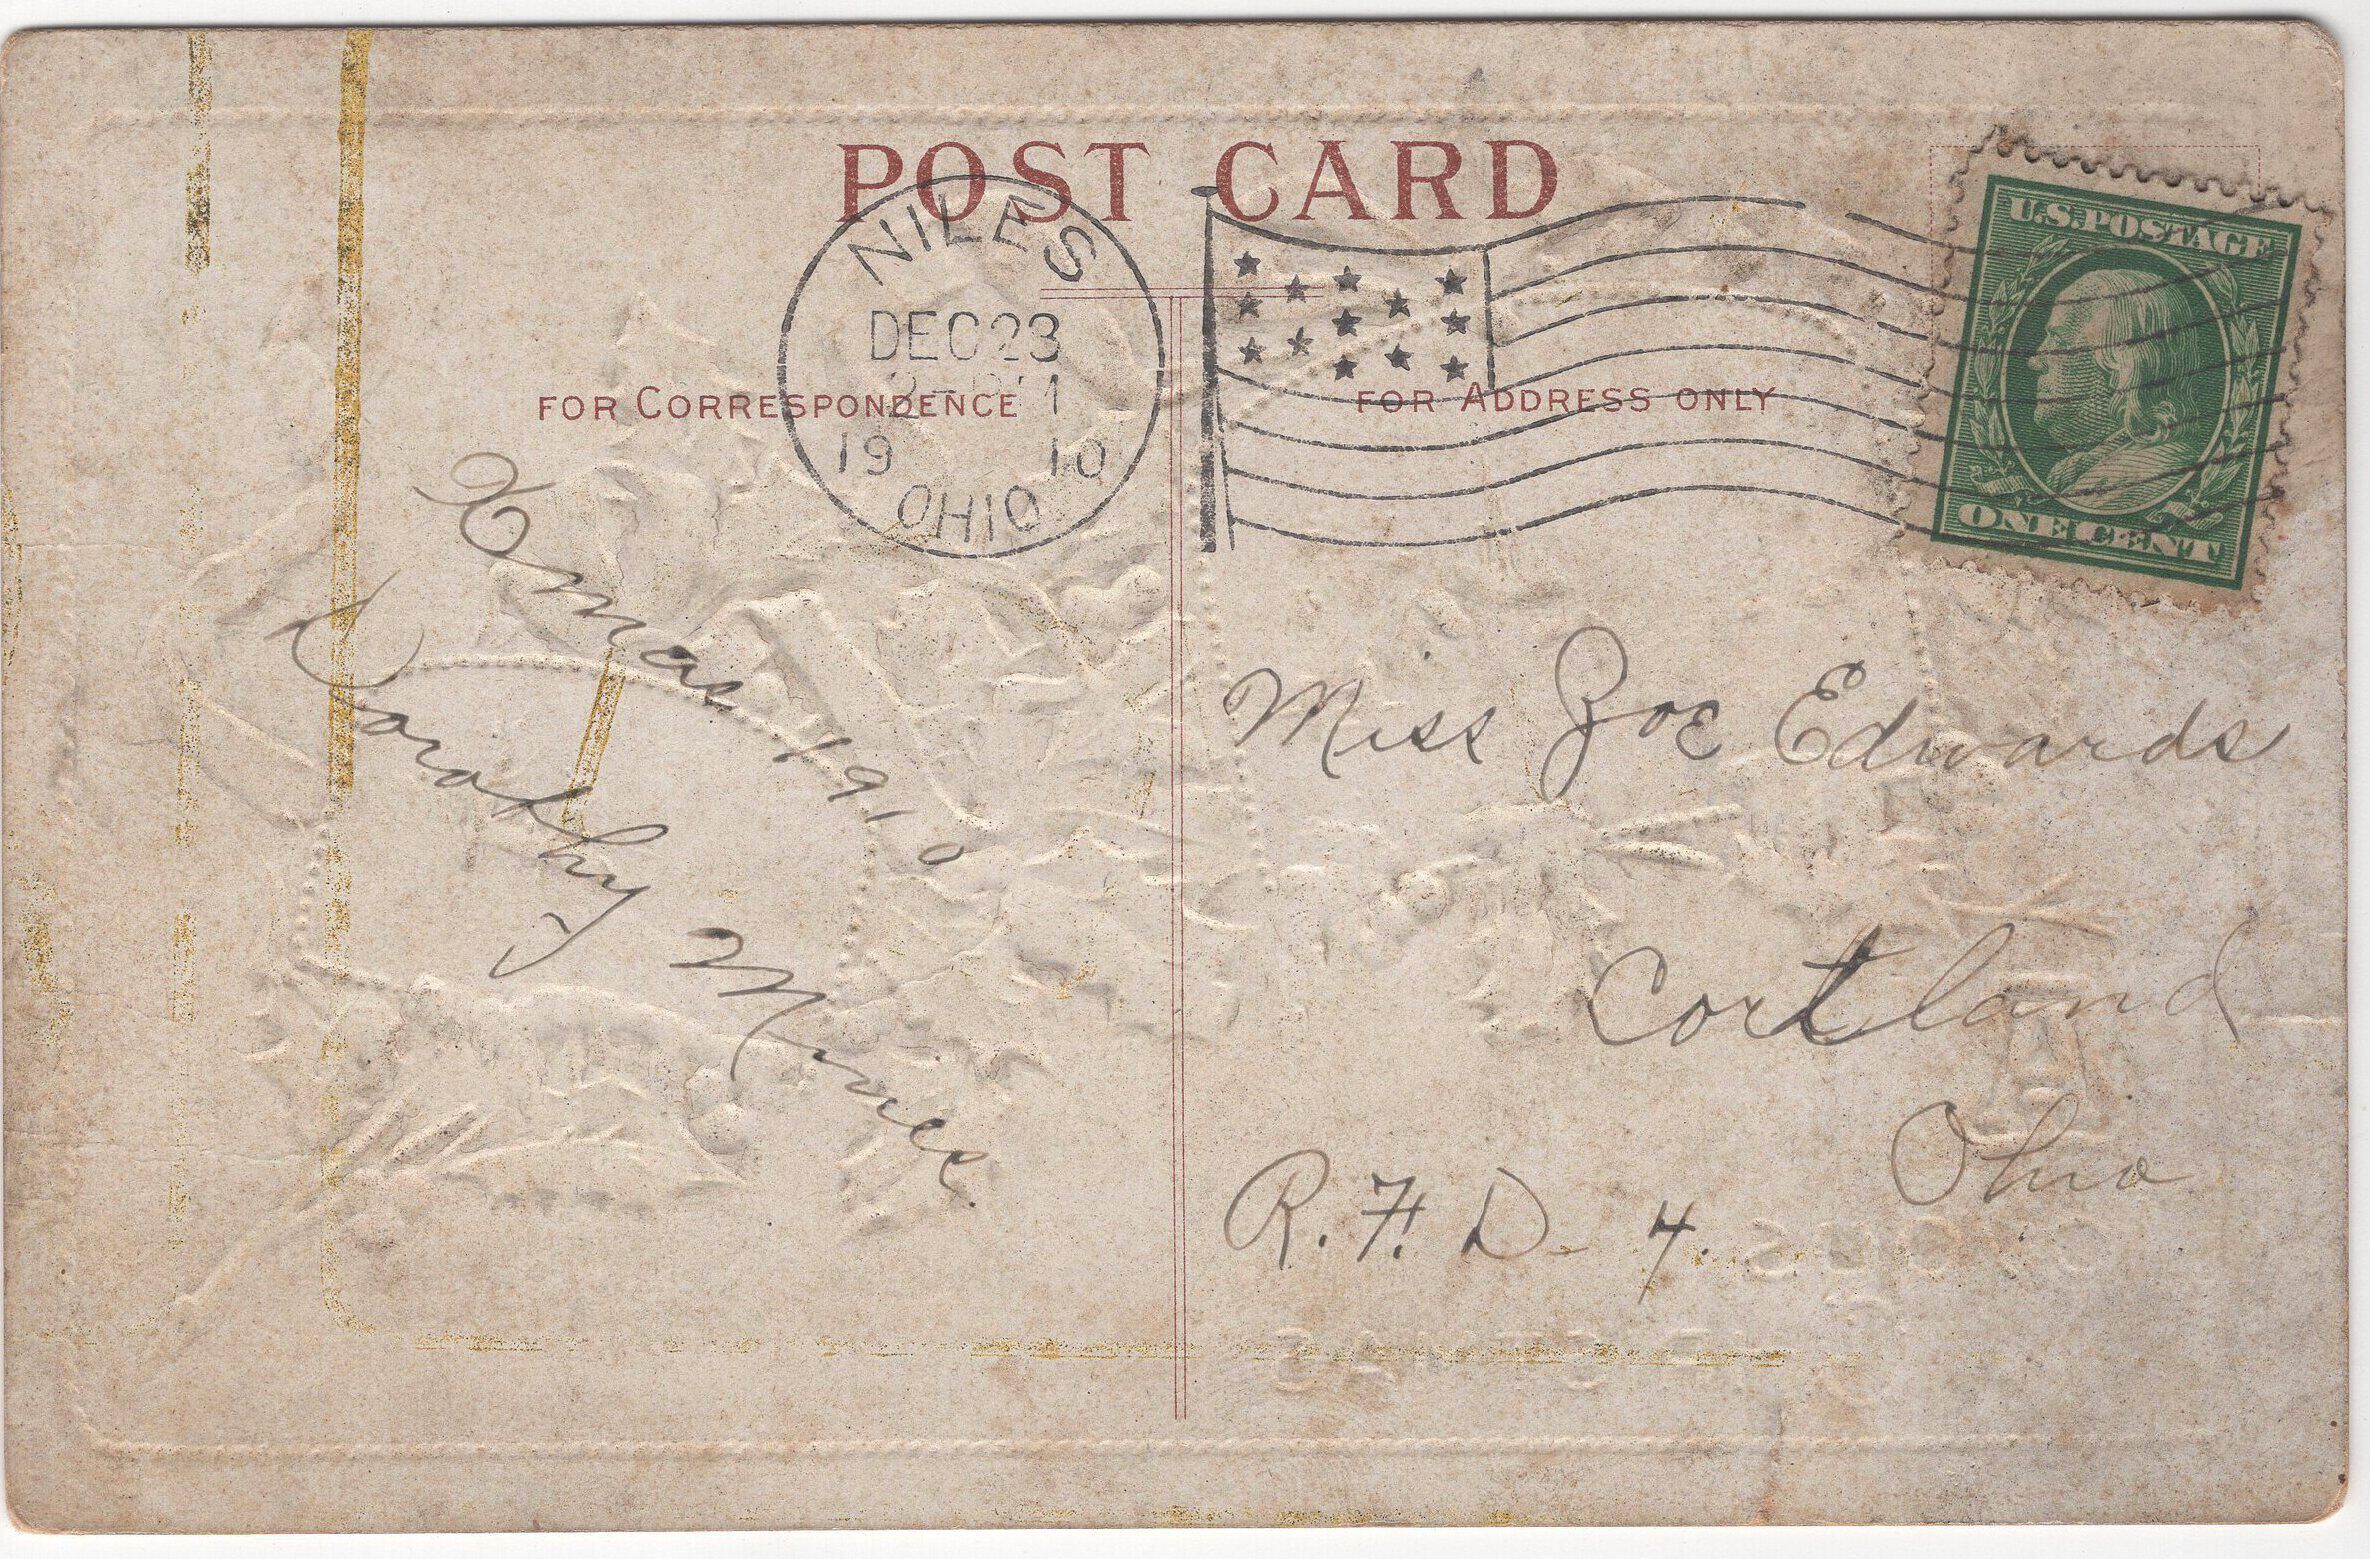 POST CARD
NILES
DEC 23
1910
OHIO
U.S. POSTAGE
ONE CENT
FOR CORRESPONDENCE
FOR ADDRESS ONLY
Xmas 1910
Dorothy
Miss Zoe Edwards
Cortland
Ohio
R. F. D - 4.